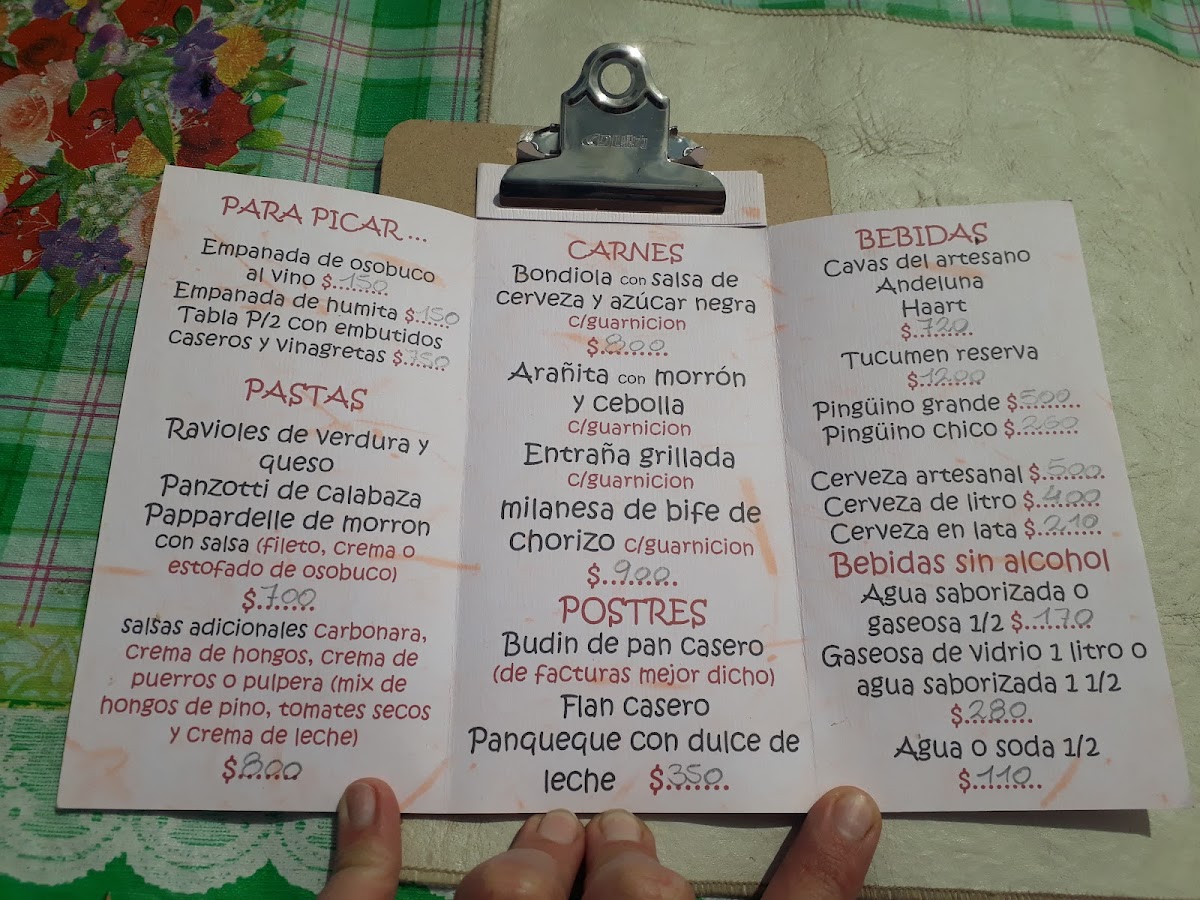 PARA PICAR...
Empanada de osobuco
al vino $..150..
Empanada de humita $..150
Tabla P/2 con embutidos
caseros y vinagretas $.750.
PASTAS
Ravioles de verdura y
queso
Panzotti de calabaza
Pappardelle de morron
con salsa (fileto, crema o
estofado de osobuco)
$.700...
salsas adicionales carbonara,
crema de hongos, crema de
puerros o pulpera (mix de
hongos de pino, tomates secos
y crema de leche)
$..800
CARNES
Bondiola con salsa de
cerveza y azúcar negra
c/guarnicion
$..800...
Arañita con morrón
y cebolla
c/guarnicion
Entraña grillada
c/guarnicion
milanesa de bife de
chorizo c/guarnicion
$..900..
POSTRES
Budin de pan casero
(de facturas mejor dicho)
Flan casero
Panqueque con dulce de
leche $..350..
BEBIDAS
Cavas del artesano
Andeluna
Haart
$..720..
Tucumen reserva
$.1200..
Pingüino grande $.500...
Pingüino chico $..260...
Cerveza artesanal $..500..
Cerveza de litro $..400..
Cerveza en lata $..210..
Bebidas sin alcohol
Agua saborizada o
gaseosa 1/2 $..170
Gaseosa de vidrio 1 litro o
agua saborizada 1 1/2
$..280..
Agua o soda 1/2
$..110..